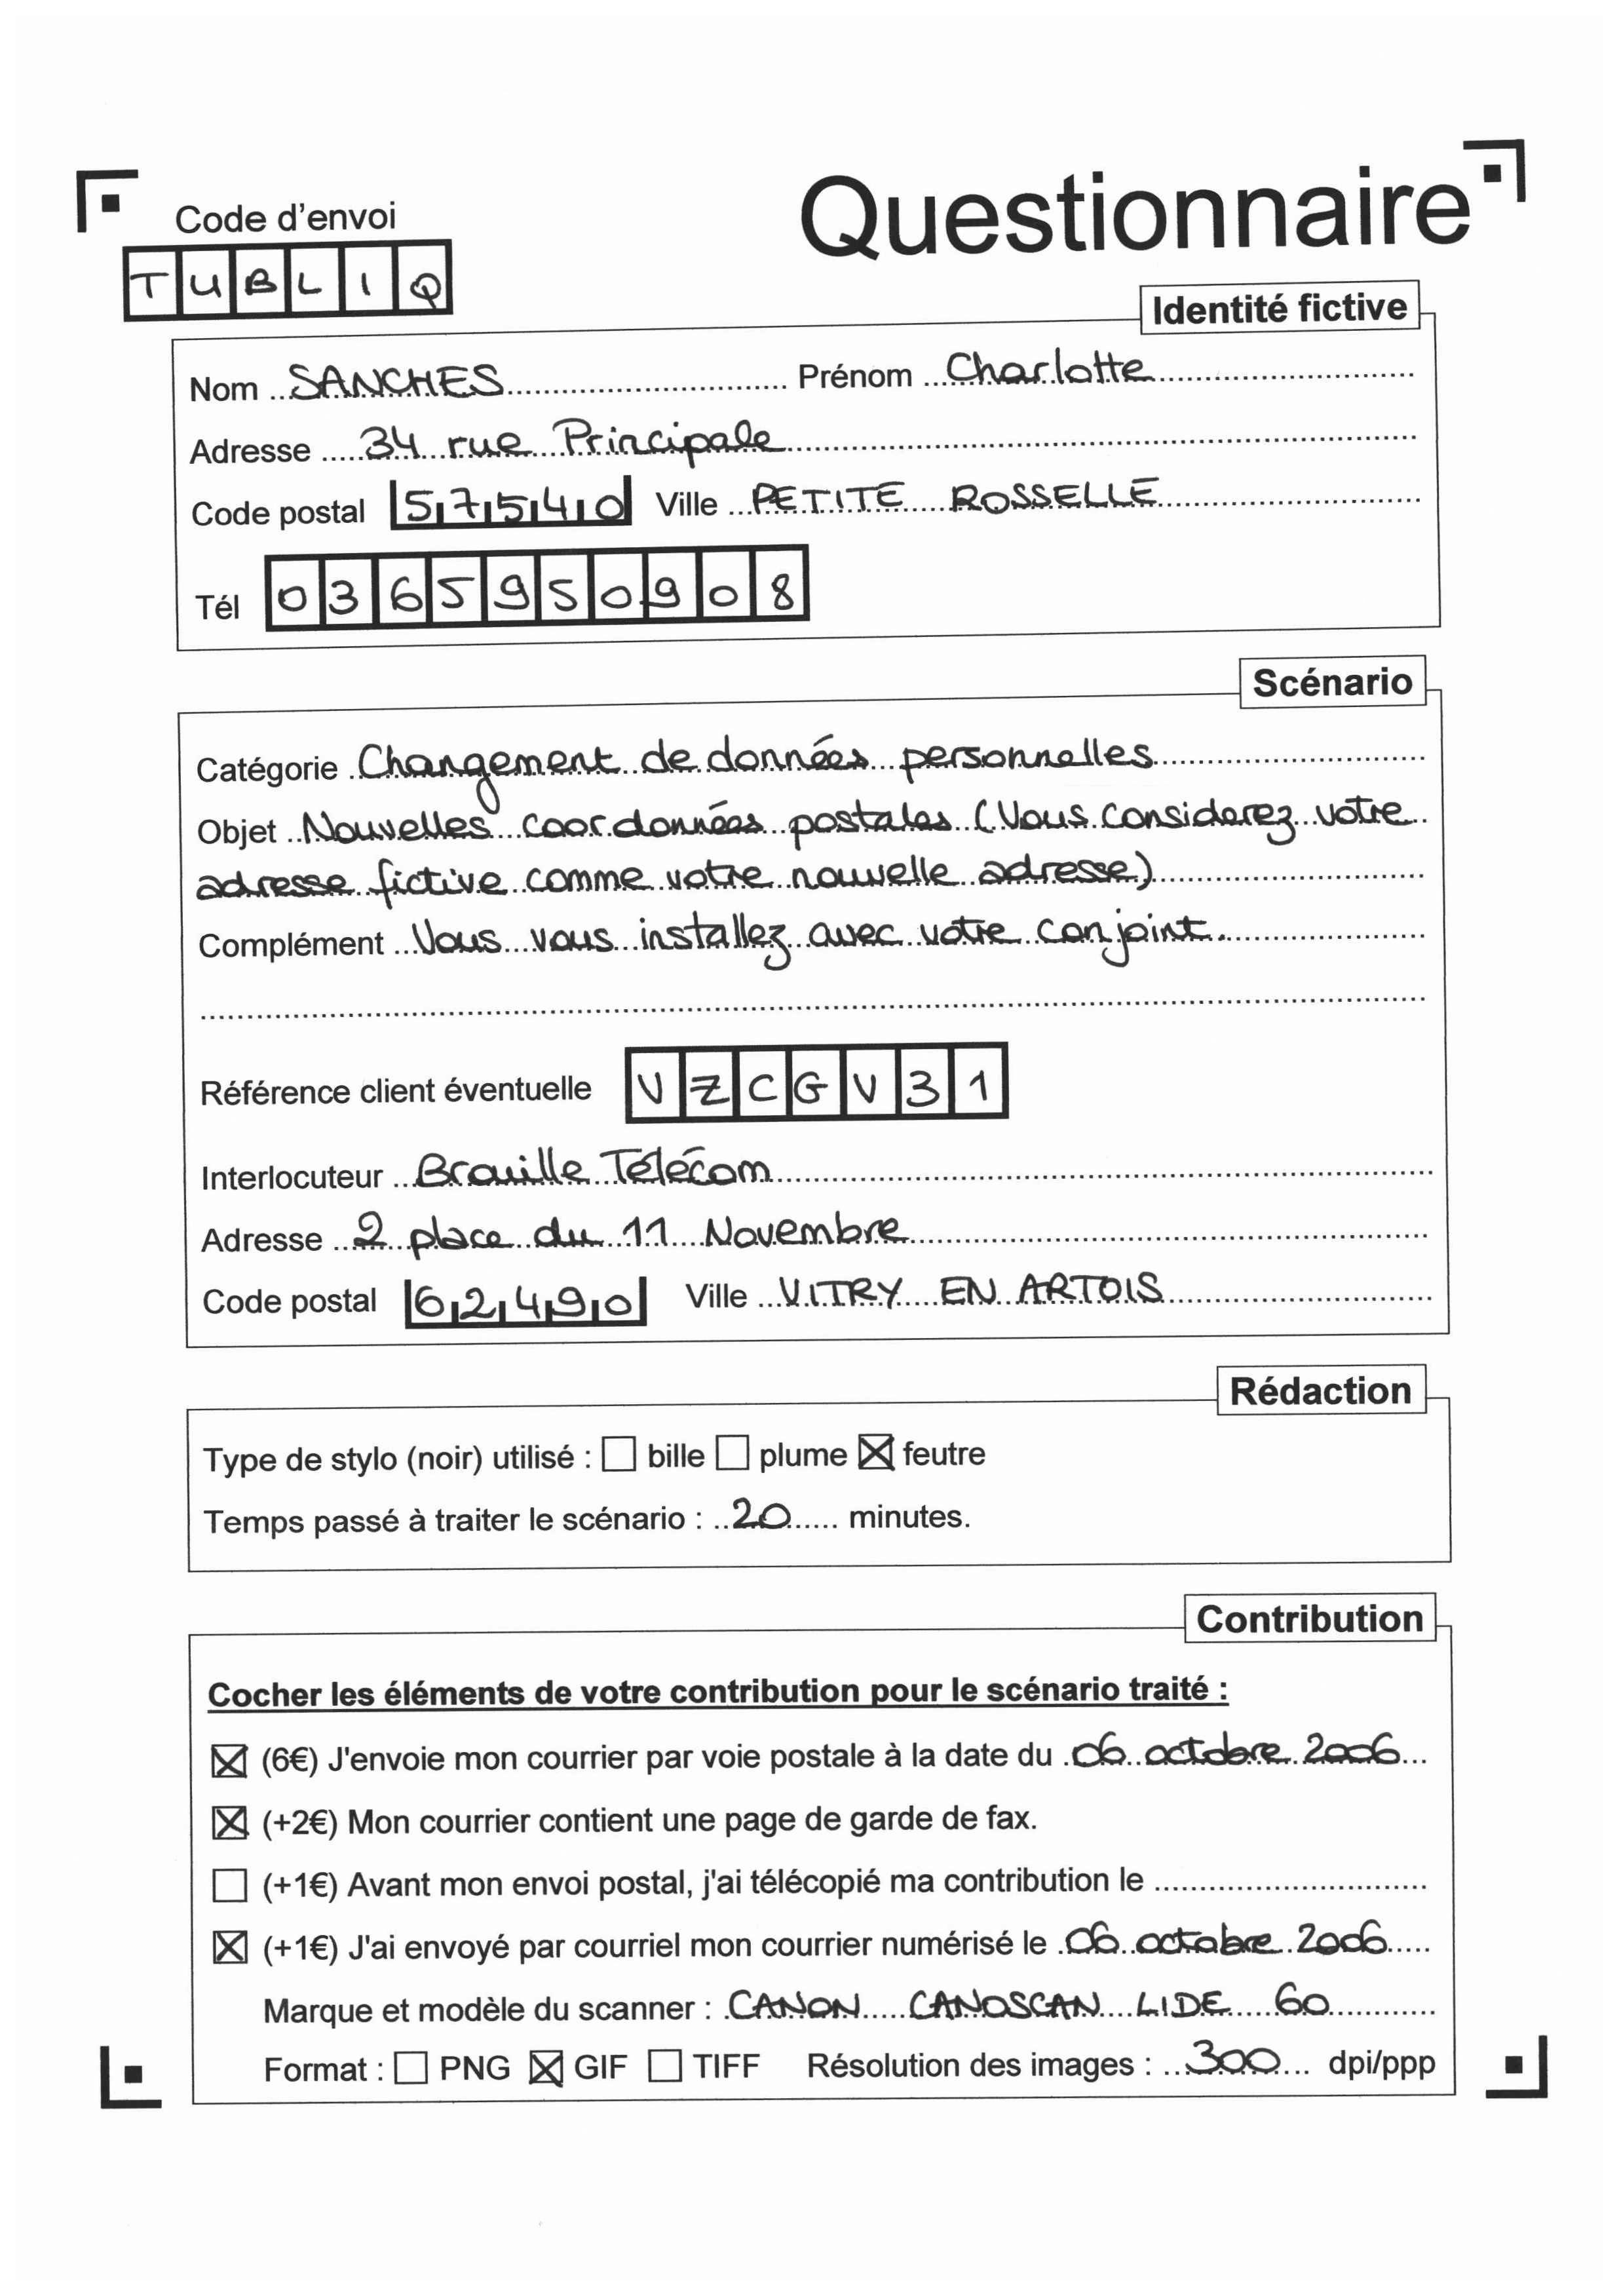 Questionnaire
Code d'envoi
TUBLIQ
Identité fictive
Nom SANCHES Prénom Charlotte
Adresse 34 rue Principale
Code postal 57540 Ville PETITE ROSSELLE
Tél 0365950908
Scénario
Catégorie Changement de données personnelles
Objet Nouvelles coordonnées postales (Vous considerez votre
adresse fictive comme votre nouvelle adresse)
Complément Vous vous installez avec votre conjoint.
Référence client éventuelle VZCGV31
Interlocuteur Brouille Télécom
Adresse 2 place du 11 Novembre
Code postal 62490 Ville VITRY EN ARTOIS
Rédaction
Type de stylo (noir) utilisé : ☐ bille ☐ plume ☒ feutre
Temps passé à traiter le scénario : 20 minutes.
Contribution
Cocher les éléments de votre contribution pour le scénario traité :
☒ (6€) J'envoie mon courrier par voie postale à la date du 06 octobre 2006
☒ (+2€) Mon courrier contient une page de garde de fax.
☐ (+1€) Avant mon envoi postal, j'ai télécopié ma contribution le
☒ (+1€) J'ai envoyé par courriel mon courrier numérisé le 06 octobre 2006
Marque et modèle du scanner : CANON CANOSCAN LIDE 60
Format : ☐ PNG ☒ GIF ☐ TIFF Résolution des images : 300 dpi/ppp